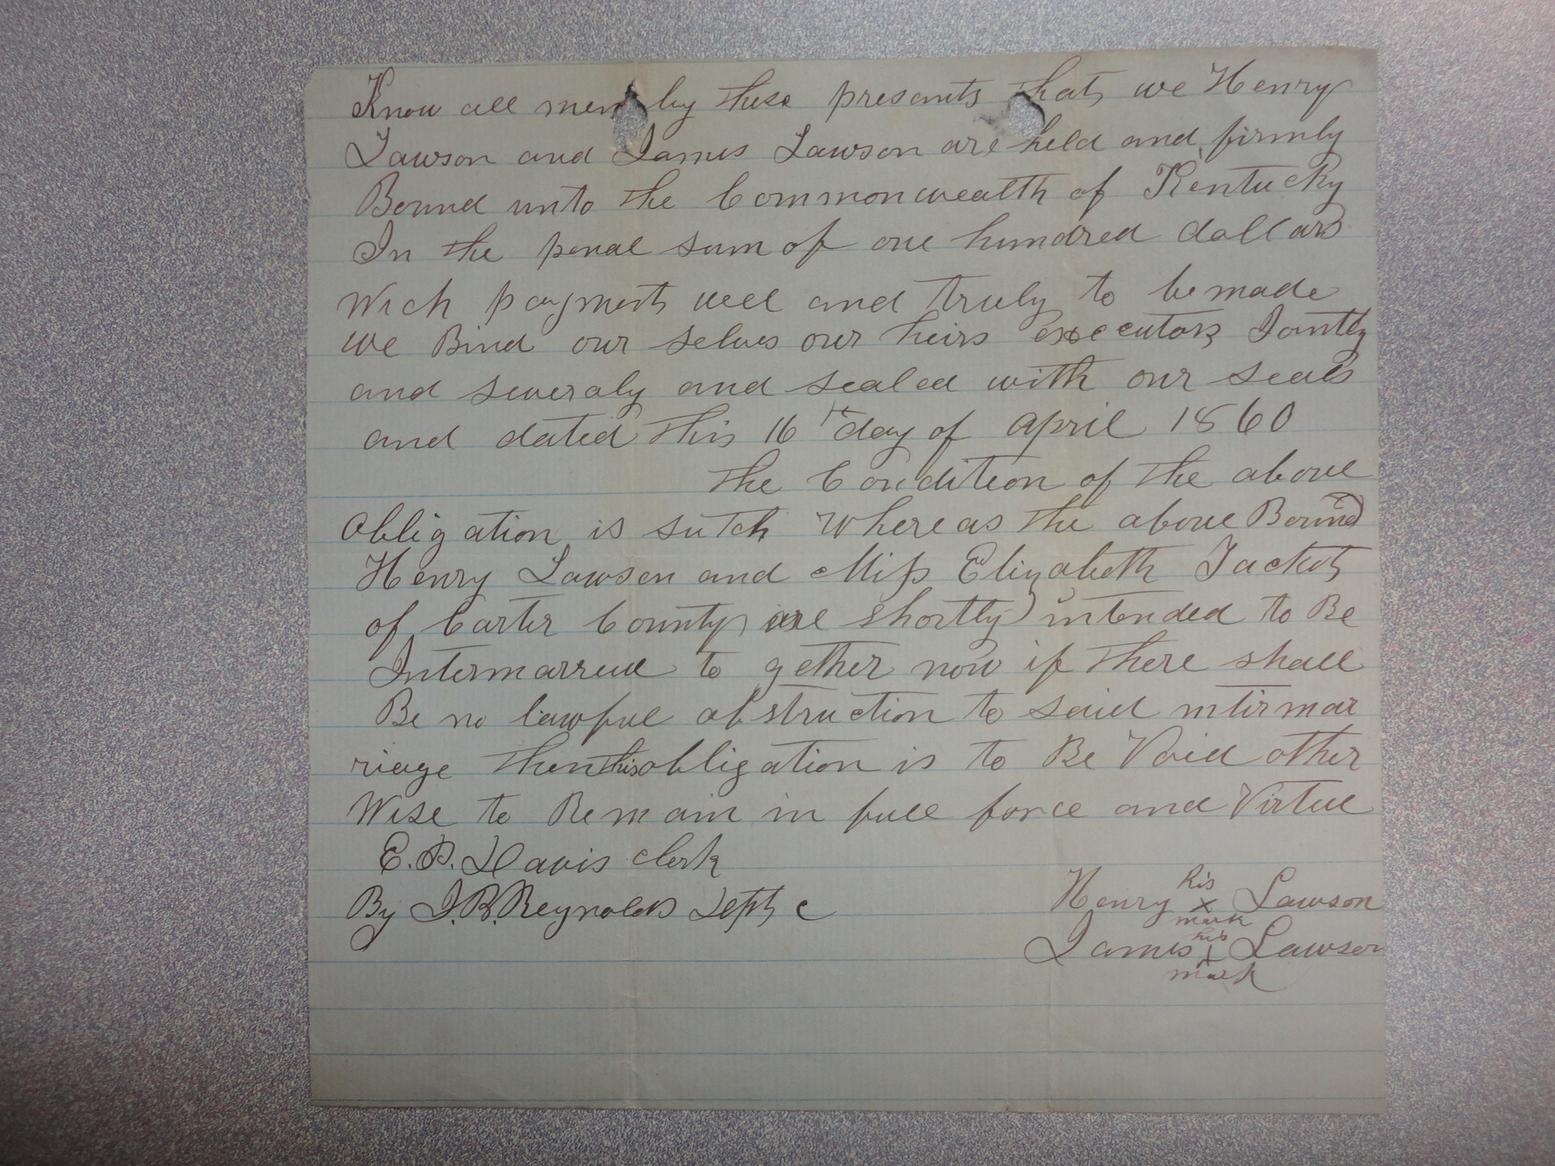 Know all men by these presents that we Henry
Lawson and James Lawson are held and firmly
Bound unto the Commonwealth of Kentucky
In the penal sum of one hundred dollars
Wich payment well and truly to be made
we Bind our selves our heirs executors Jointly
and severaly and sealed with our seals
and dated this 16th day of april 1860
the Condition of the above
obligation is sutch Whereas the above Bound
Henry Lawson and Miss Elizabeth Jackot
of Carter County are shortly intended to Be
Intermarreid to gether now if there shall
Be no lawful obstruction to said intirmar
riage then this obligation is to Be Void other
Wise to Remain in full force and Virtue
E. D. Davis clerk
By J. R. Reynolds Depty c
Henry his x mark Lawson
James his x mark Lawson